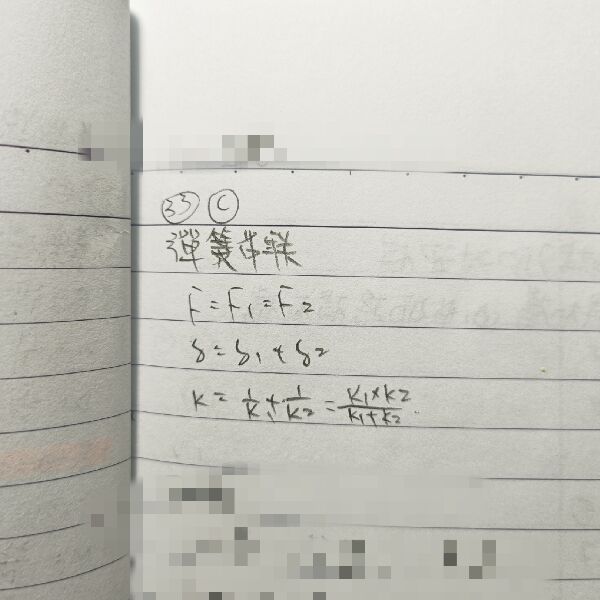 33 C
彈簧串联
F = F1 = F2
δ = δ1 + δ2
K = 1/K1 + 1/K2 = K1×K2/K1+K2